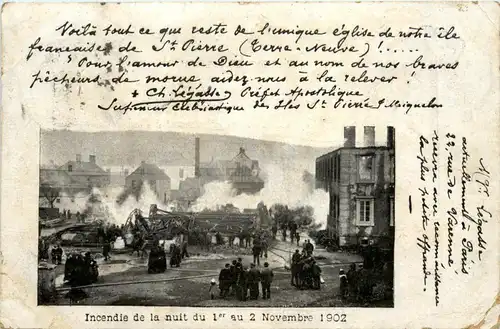 Voilà tout ce que reste de l'unique église de notre île
française de St Pierre (Terre-Neuve)!.....
"Pour l'amour de Dieu et au nom de nos braves
pêcheurs de morue aidez nous à la relever!
+ Ch. Légasse, Préfet Apostolique
Supérieur Ecclésiastique des Iles St Pierre & Miquelon
Mgr Légasse
actuellement à Paris
22, rue de Varenne
recevra avec reconnaissance
la plus petite offrande
Incendie de la nuit du 1er au 2 Novembre 1902